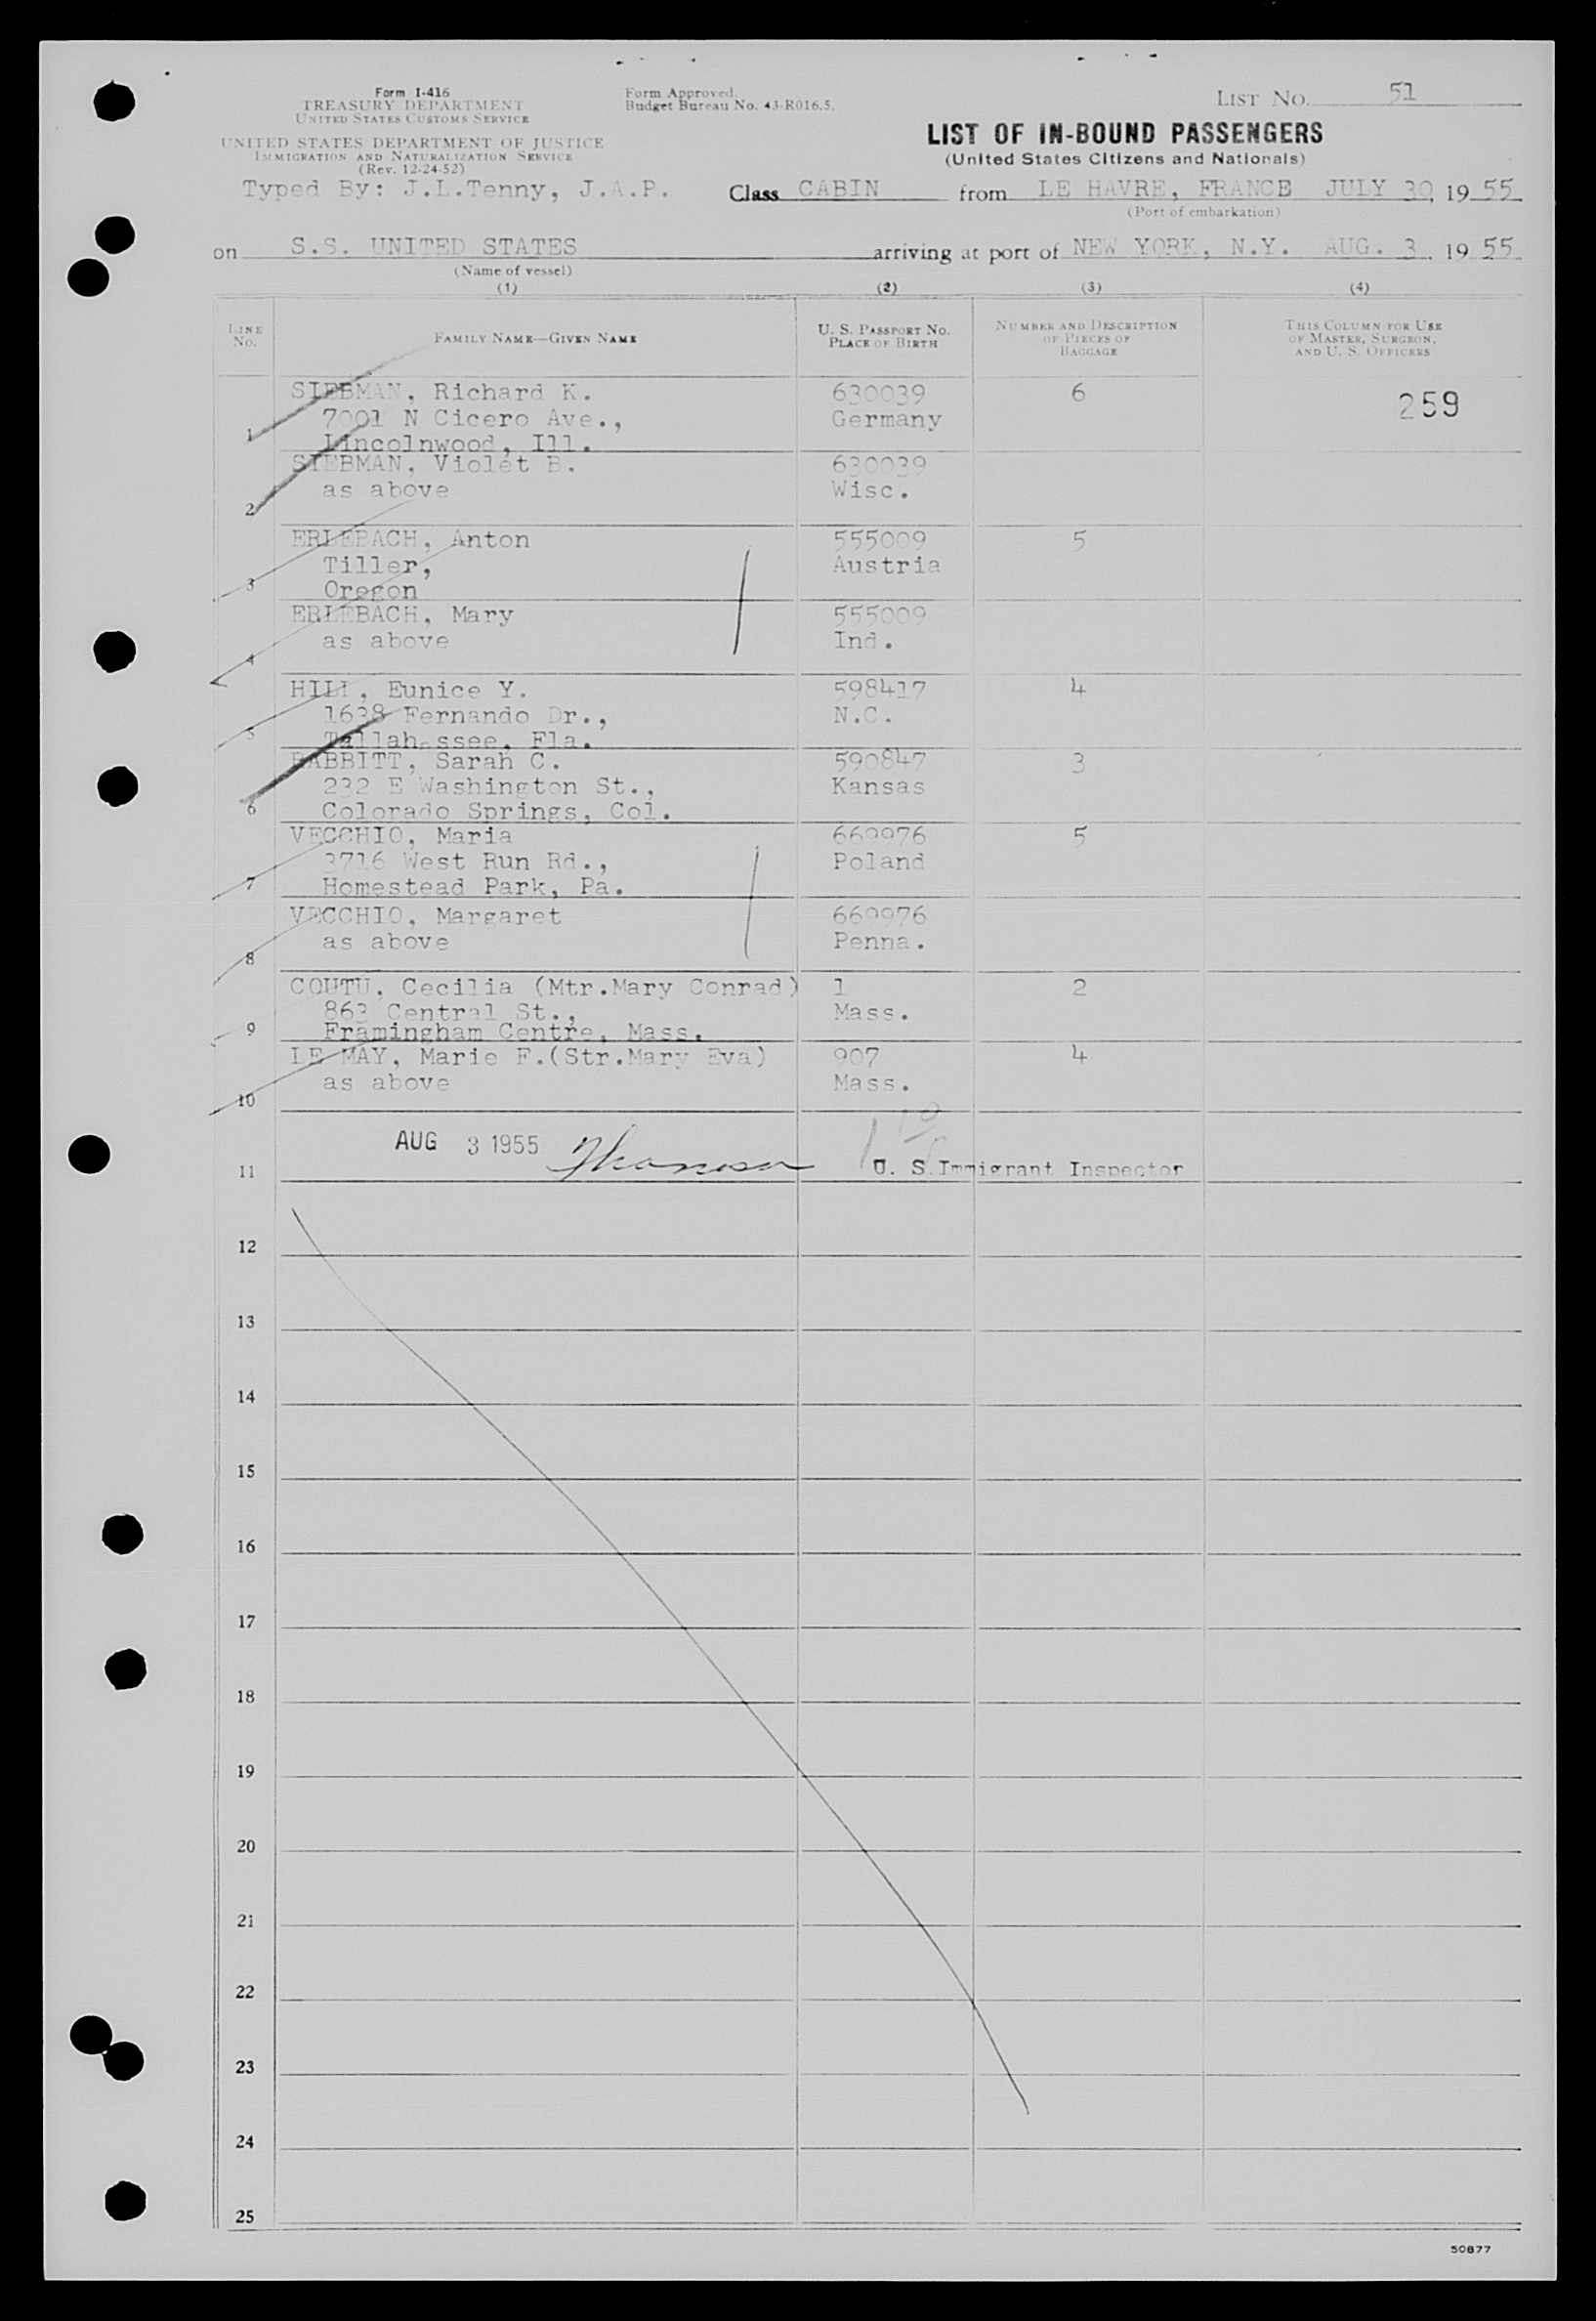 Form I-416
TREASURY DEPARTMENT
UNITED STATES CUSTOMS SERVICE
UNITED STATES DEPARTMENT OF JUSTICE
IMMIGRATION AND NATURALIZATION SERVICE
(Rev. 12-24-52)
Form Approved.
Budget Bureau No. 43-R016.5.
LIST NO. 51
LIST OF IN-BOUND PASSENGERS
(United States Citizens and Nationals)
Typed By: J.L.Tenny, J.A.P.
Class CABIN from LE HAVRE, FRANCE JULY 30, 19 55
(Port of embarkation)
on S.S. UNITED STATES arriving at port of NEW YORK, N.Y. AUG. 3, 19 55
(Name of vessel)
(1) (2) (3) (4)
LINE No.
FAMILY NAME—GIVEN NAME
U. S. PASSPORT NO.
PLACE OF BIRTH
NUMBER AND DESCRIPTION
OF PIECES OF
BAGGAGE
THIS COLUMN FOR USE
OF MASTER, SURGEON,
AND U. S. OFFICERS
SIEBMAN, Richard K. 630039 6 259
7001 N Cicero Ave., Germany
1 Lincolnwood, Ill.
SIEBMAN, Violet B. 630039
as above Wisc.
2
ERLEBACH, Anton 555009 5
Tiller, Austria
3 Oregon
ERLEBACH, Mary 555009
as above Ind.
4
HILL, Eunice Y. 598417 4
1638 Fernando Dr., N.C.
5 Tallahassee, Fla.
BABBITT, Sarah C. 590847 3
232 E Washington St., Kansas
6 Colorado Springs, Col.
VECCHIO, Maria 669976 5
3716 West Run Rd., Poland
7 Homestead Park, Pa.
VECCHIO, Margaret 669976
as above Penna.
8
COUTU, Cecilia (Mtr.Mary Conrad) 1 2
863 Central St., Mass.
9 Framingham Centre, Mass.
LE MAY, Marie F.(Str.Mary Eva) 907 4
as above Mass.
10
AUG 3 1955
11 U. S. Immigrant Inspector
12
13
14
15
16
17
18
19
20
21
22
23
24
25
50877